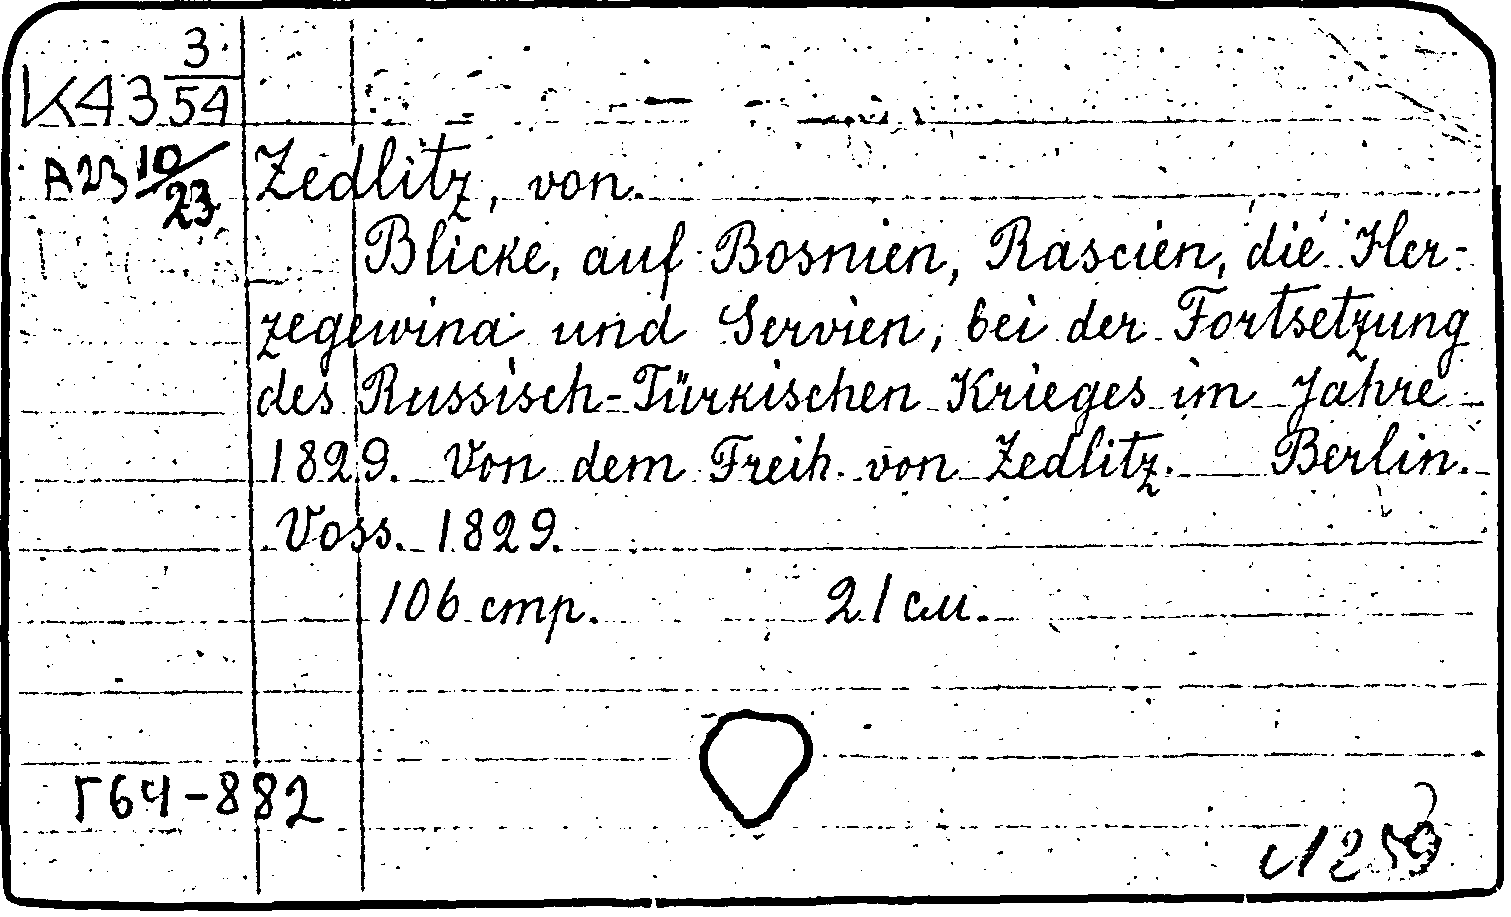 K43 3/54
A23 10/23
Zedlitz, von.
Blicke, auf Bosnien, Rascien, die Her-
zegewina und Servien, bei der Fortsetzung
des Russisch-Türkischen Krieges im Jahre
1829. Von dem Freih. von Zedlitz. Berlin.
Voss. 1829.
106 стр. 21 см.
Г64-882